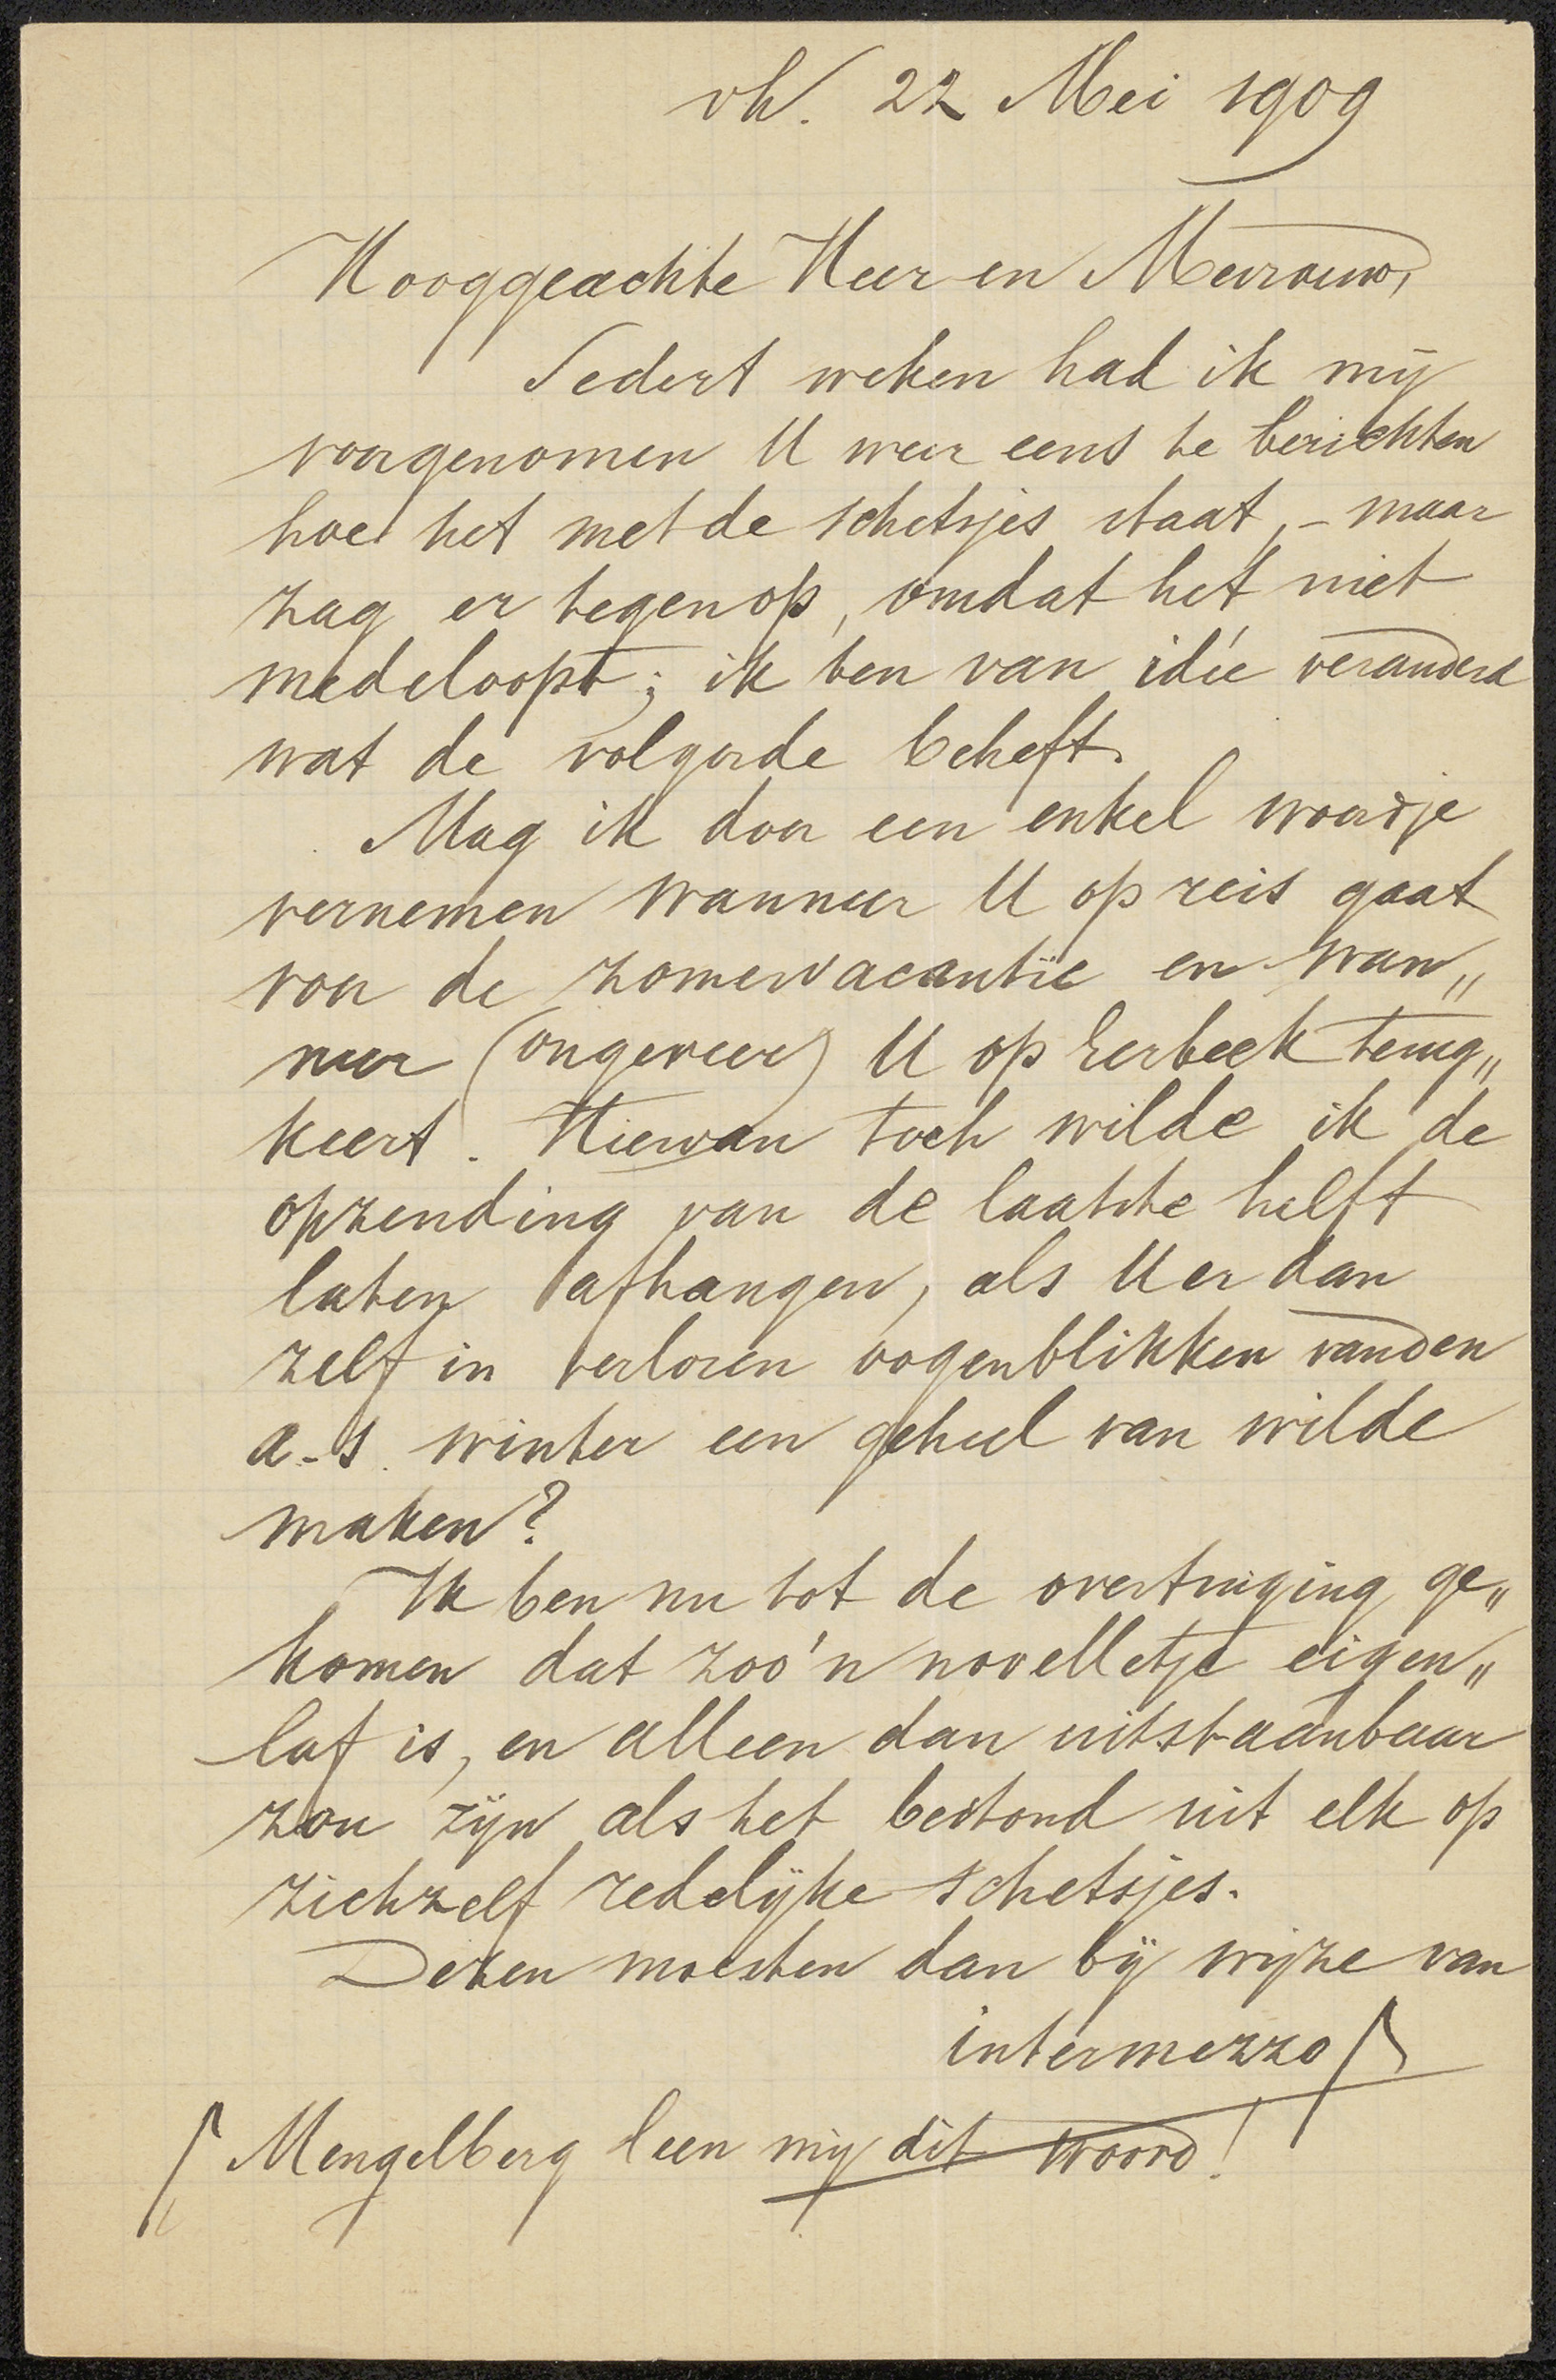 vh. 22 Mei 1909
Hooggeachte Heer en Mevrouw,
Sedert weken had ik mij
voorgenomen U weer eens te berichten
hoe het met de schetsjes staat, - maar
zag er tegen op, omdat het niet
medeloopt; ik ben van idée veranderd
wat de volgorde beheft.
Mag ik door een enkel woordje
vernemen wanneer U op reis gaat
voor de zomervacantie en wan„
neer (ongeveer) U op Eerbeek terug„
keert. Hiervan toch wilde ik de
opzending van de laatste helft
laten afhangen, als U er dan
zelf in verloren oogenblikken van den
a.s. winter een geheel van wilde
maken?
Ik ben nu tot de overtuiging ge„
komen dat zoo'n novelletje eigen„
laf is, en alleen dan uitstaanbaar
zou zijn als het bestond uit elk op
zichzelf redelijke schetsjes.
Dezen moesten dan bij wijze van
intermezzo
Mengelberg leen mij dit woord!